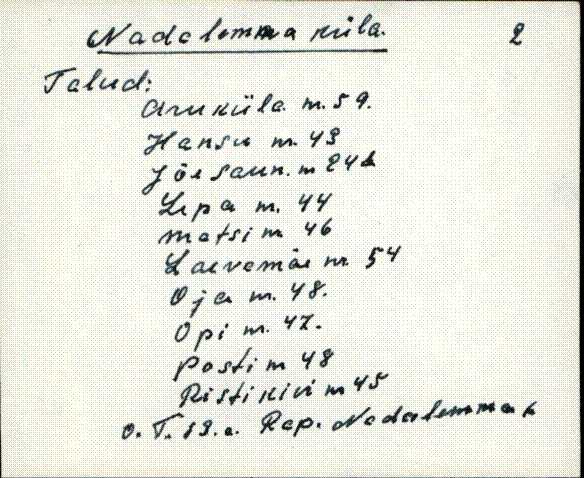 Nadalemma küla. 2
Talud:
Aruküla m. 59.
Hansu m. 43
Jõesaun. m 24
Lepa m. 44
Matsi m 46
Laevamäe m 54
Oja m. 48.
Opi m. 47.
Posti m 48
Ristikivi m 45
O. T. Rap. Nadalemma k